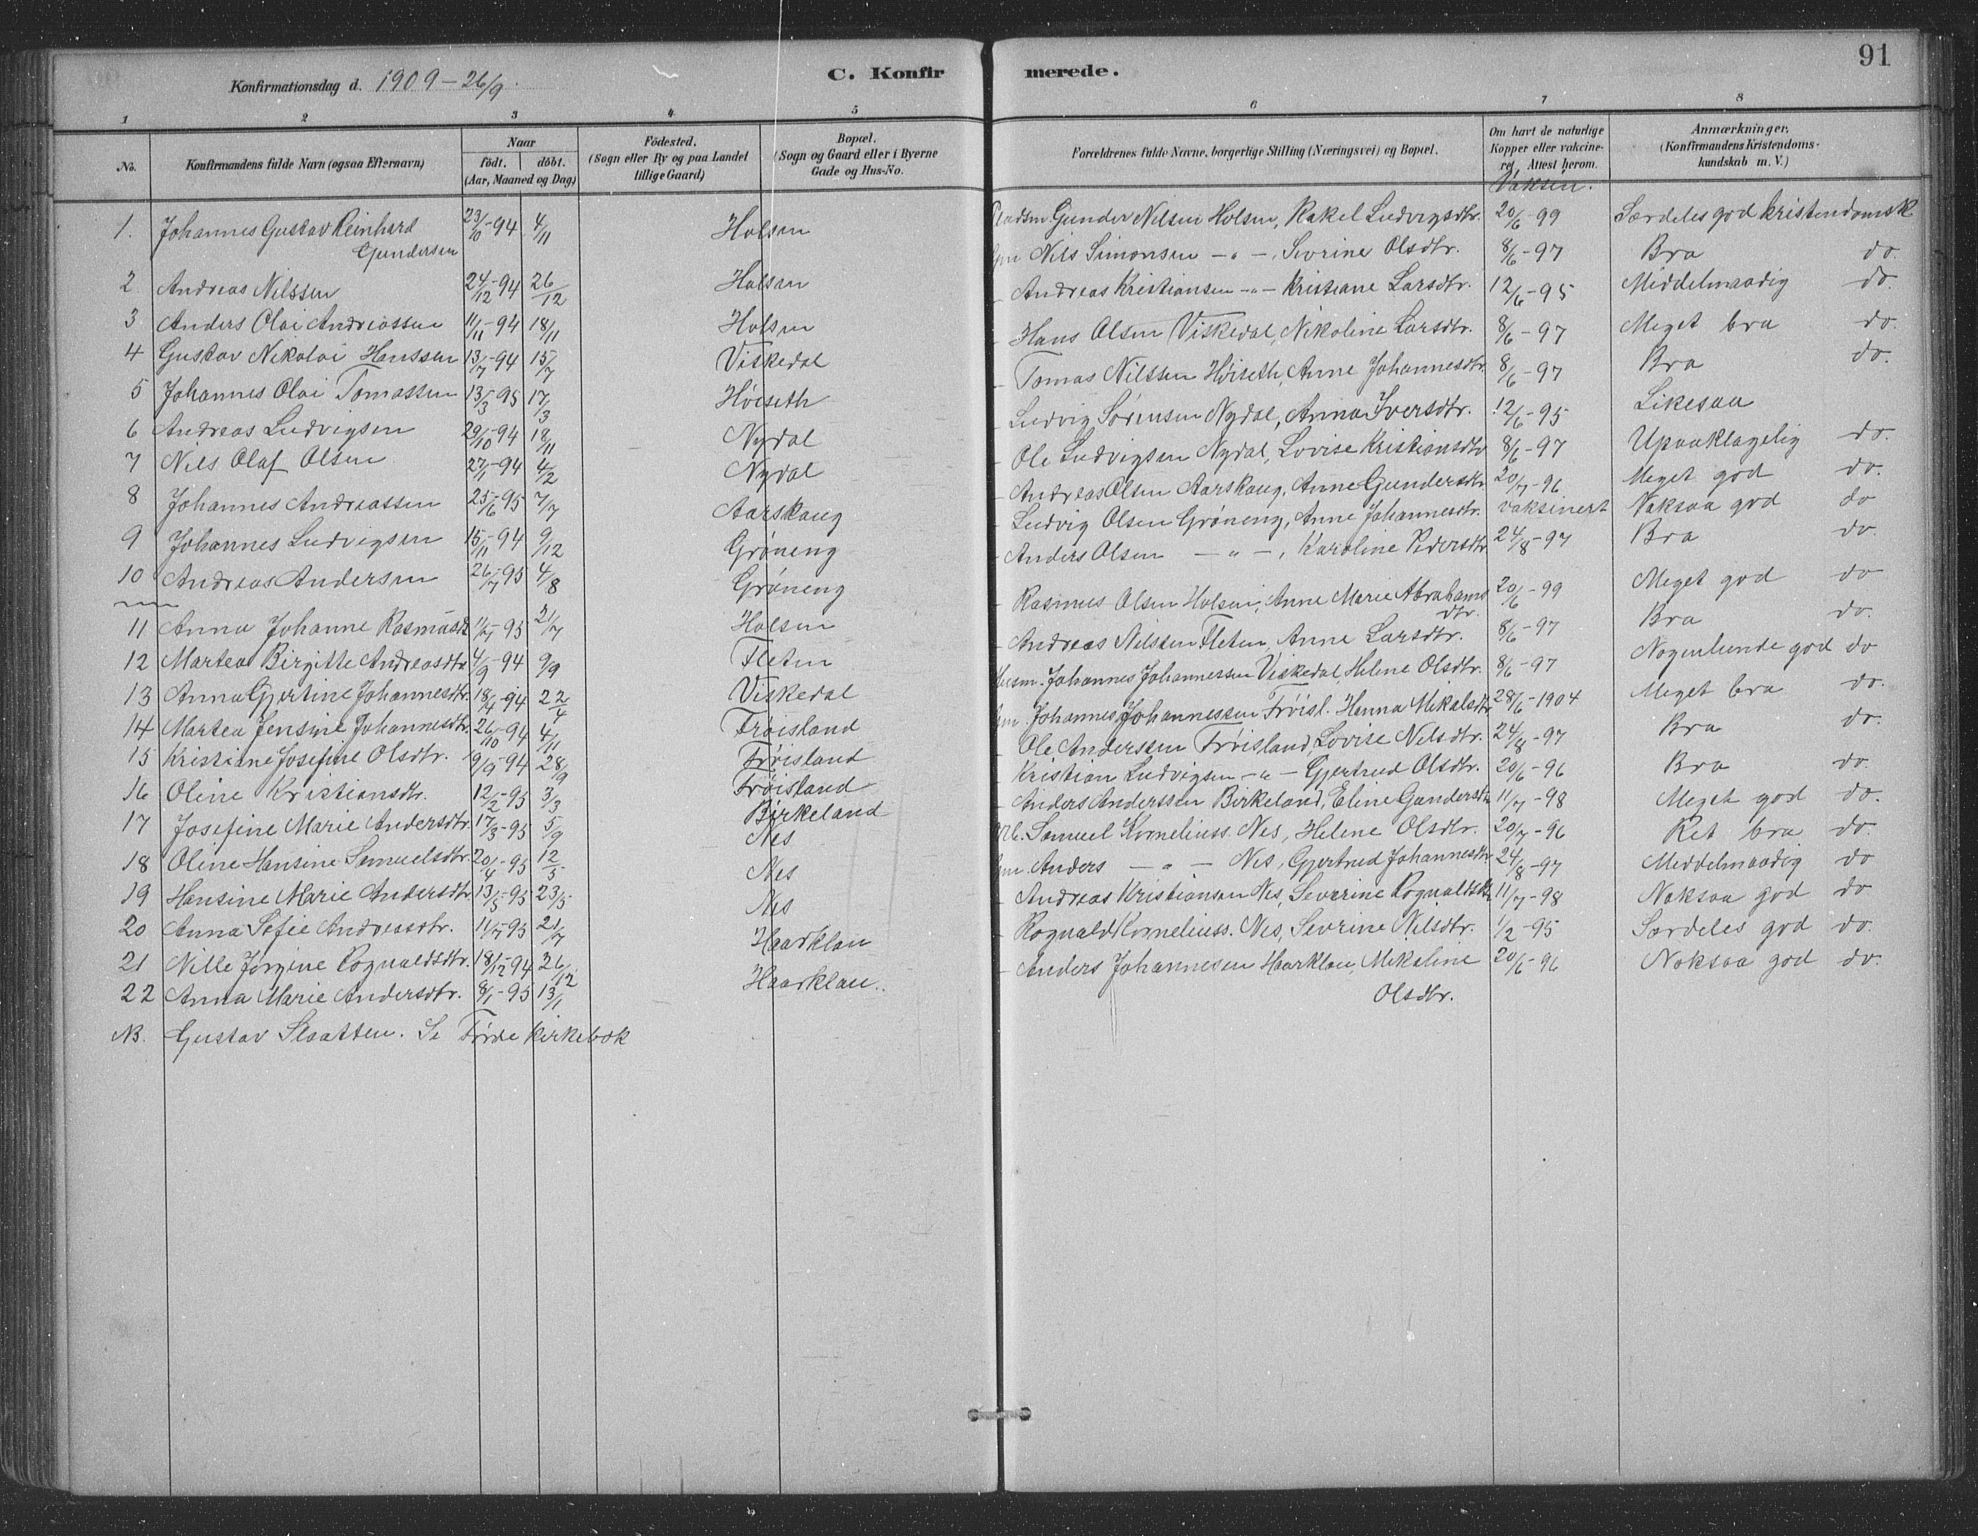 91
Konfirmationsdag d. 1909 - 26/9.
C. Konfir merede.
1 2 3 4 5 6 7 8
No.
Konfirmandens fulde Navn (ogsaa Efternavn)
Naar
födt. döbt.
(Aar, Maaned og Dag)
Födested.
(Sogn eller By og paa Landet
tillige Gaard)
Bopæl.
(Sogn og Gaard eller i Byerne
Gade og Hus-No.
Forældrenes fulde Navne, borgerlige Stilling (Næringsvei) og Bopæl.
Om havt de naturlige
Kopper eller vakcine-
ret. Attest herom.
Anmærkninger.
(Konfirmandens Kristendoms-
kundskab m. V.)
Vaksin.
1. Johannes Gustav Reinhard Gundersen 23/10-94 4/11 Holsen Gunder Nilsen Holsen, Rakel Ludvigsdtr. 20/6-99 Særdeles god kristendomsk
2 Andreas Nilssen 24/12-94 26/12 Holsen Nils Simonsen -"-, Sevrine Olsdtr. 8/6-97 Bra do.
3 Anders Olai Andreassen 11/11-94 18/11 Holsen - Andreas Kristiansen -"- Kristiane Larsdtr. 12/6-95 Middelmaadig do.
4 Gustav Nikolai Hanssen 13/7-94 15/7 Viskedal - Hans Olsen Viskedal, Nikoline Larsdtr. 8/6-97 Meget bra do.
5 Johannes Olai Tomassen 13/3-95 17/3 Høiseth - Tomas Nilssen Høiseth, Anne Johannesdtr 8/6-97 Bra do.
6 Andreas Ludvigsen 29/10-94 18/11 Nydal - Ludvig Sørensen Nydal, Anna Iversdtr. 12/6-95 Likesaa
7 Nils Olaf Olsen 27/1-94 4/2 Nydal - Ole Ludvigsen Nydal, Lovise Kristiansdtr 8/6-97 Upaaklagelig do.
8 Johannes Andreassen 25/6-95 7/7 Aarskaug - Andreas Olsen Aarskaug, Anne Gundersdtr 20/7-96 Meget god do.
9 Johannes Ludvigsen 15/11-94 9/12 Grøneng - Ludvig Olsen Grøneng, Anne Johannesdtr. vaksinert Noksaa god do
10 Andreas Andersen 26/7-95 4/8 Grøneng - Anders Olsen -"-, Karoline Pedersdtr 24/8-97 Bra do.
11 Anna Johanne Rasmusdtr 1/7-95 21/7 Holsen - Rasmus Olsen Holsen, Anne Marie Abrahamsdtr. 20/6-99 Meget god do
12 Martea Birgitte Andreasdtr 4/9-94 9/9 Fleten - Andreas Nilssen Fleten, Anne Larsdtr. 8/6-97 Bra do.
13 Anna Gjertine Johannesdtr. 18/4-94 22/4 Viskedal Husm. Johannes Johannessen Viskedal, Helene Olsdtr. 8/6-97 Nogenlunde god do
14 Martea Jensine Johannesdtr. 26/10-94 4/11 Frøisland Johannes Johannessen Frøisl. Hanna Mikalsdtr 28/6-1904 Meget bra do.
15 Kristiane Josefine Olsdtr. 19/9-94 28/9 Frøisland - Ole Anderssen Frøisland, Lovise Nilsdtr. 24/8-97 Bra do.
16 Oline Kristiansdtr. 12/2-95 3/3 Frøisland - Kristian Ludvigsen -"- Gjertrud Olsdtr. 20/6-96 Bra do.
17 Josefine Marie Andersdtr. 17/3-95 5/9 Birkeland - Anders Anderssen Birkeland, Eline Gundersdtr 11/7-98 Meget god do.
18 Oline Hansine Samuelsdtr. 20/4-95 12/5 Nes Samuel Korneliuss. Nes, Helene Olsdtr. 20/7-96 Ret bra do.
19 Hansine Marie Andersdtr 13/5-95 23/5 Nes Anders -"- Nes, Gjertrud Johannesdtr 24/8-97 Middelmaadig do
20 Anna Sofie Andreasdtr. 11/7-95 21/7 Nes - Andreas Kristiansen Nes, Severine Rognaldsdtr 11/7-98 Noksaa god do
21 Nille Jørgine Rognaldsdtr. 18/12-94 26/12 Haarklau - Rognald Korneliuss. Nes, Sevrine Nilsdtr. 1/2-95 Særdeles god do.
22 Anna Marie Andersdtr. 8/1-95 13/1 Haarklau. - Anders Johannesen Haarklau, Mikaline Olsdtr. 20/6-96 Noksaa god do.
NB. Gustav Slaatten. Se Førde kirkebok